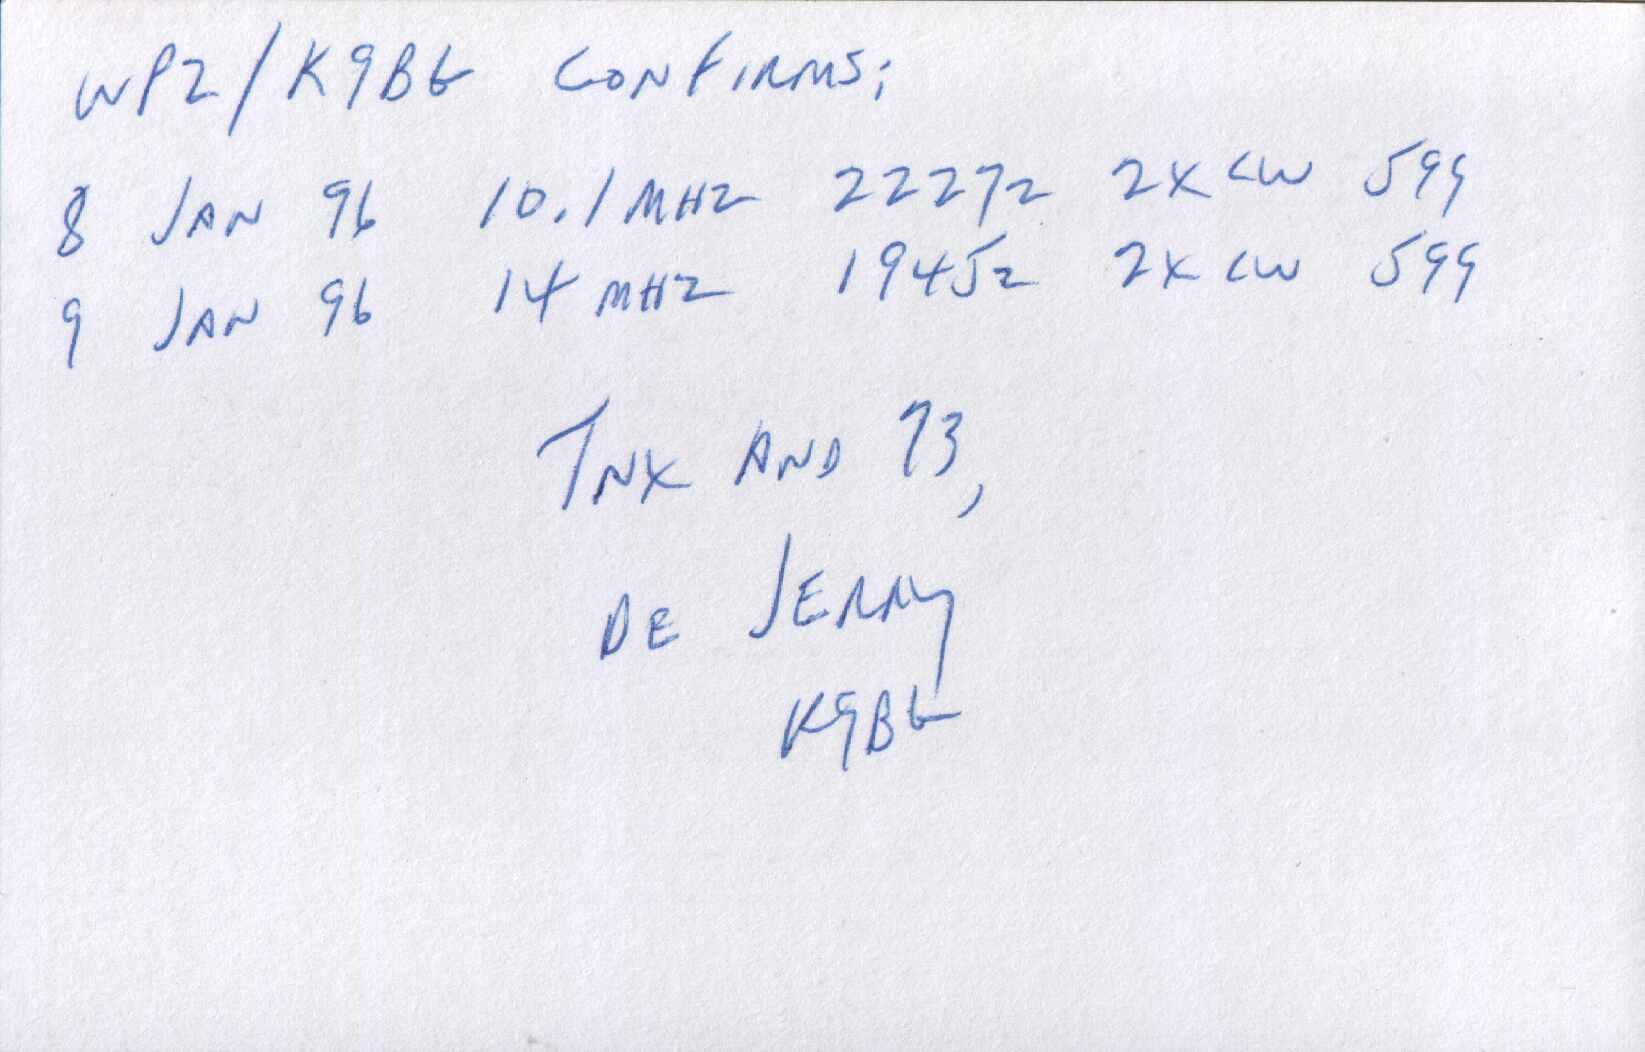 WP2/K9BG CONFIRMS;
8 JAN 96 10.1 MHZ 2227Z 2X CW 599
9 JAN 96 14 MHZ 1945Z 2X CW 599
TNX AND 73,
DE JERRY
K9BG